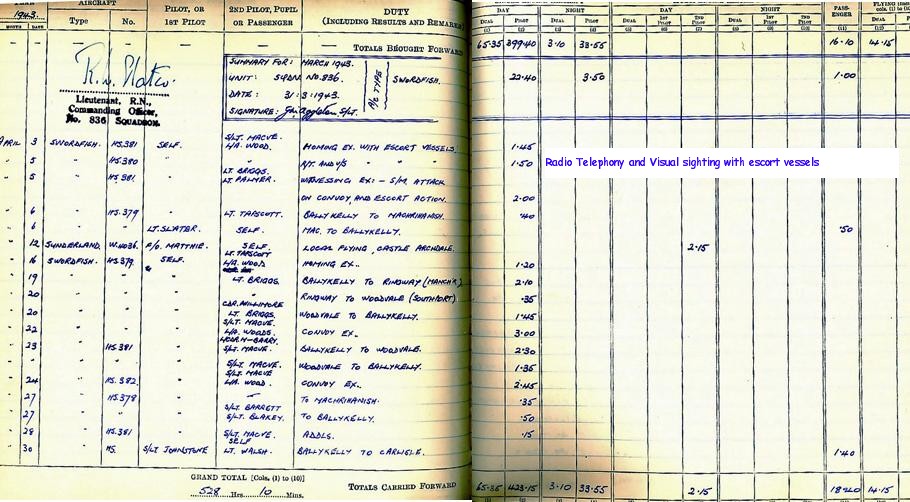 1943. AIRCRAFT PILOT, OR 1ST PILOT 2ND PILOT, PUPIL OR PASSENGER DUTY (INCLUDING RESULTS AND REMARKS DAY NIGHT DAY NIGHT PASS- ENGER FLYING
MONTH DATE Type No. DUAL PILOT DUAL PILOT DUAL DUAL (11) DUAL
— — — — — TOTALS BROUGHT FORWARD 65.35 399.40 3.10 33.55 16.10 14.15
SUMMARY FOR: MARCH 1943.
UNIT: SQDN. No. 836. A/C TYPE SWORDFISH. 22.40 3.50 1.00
DATE: 31:3:1943.
SIGNATURE: S/Lt.
Lieutenant, R.N.,
Commanding Officer,
No. 836 SQUADRON.
APRIL 3 SWORDFISH HS.381 SELF. S/LT. MACVE. L/A. WOOD. HOMING EX. WITH ESCORT VESSELS 1.45
" 5 " HS.380 " " R/T. AND V/S " " " 1.50 Radio Telephony and Visual sighting with escort vessels
" 5 " HS.381. " LT. BRIGGS. LT. PALMER. WITNESSING EX:- S/M. ATTACK
ON CONVOY, AND ESCORT ACTION. 2.00
" 6 " HS.379 " LT. TAPSCOTT. BALLYKELLY TO MACHRIHANISH. .40
" 6 " " LT. SLATER. SELF. MAC. TO BALLYKELLY. .50
" 12 SUNDERLAND. W.4036. F/O. MATTHIE. SELF. LOCAL FLYING, CASTLE ARCHDALE. 2.15
" 16 SWORDFISH. HS.379. SELF. LT. TAPSCOTT L/A. WOOD HOMING EX.. 1.20
" 19 " " " LT. BRIGGS. BALLYKELLY TO RINGWAY (MANCH'R) 2.10
" 20 " " " " RINGWAY TO WOODVALE (SOUTHPORT). .35
" 20 " " " CDR. MILLIMORE LT. BRIGGS. WOODVALE TO BALLYKELLY. 1.45
" 22 " " " S/LT. MACVE. L/A. WOODS. CONVOY EX.. 3.00
" 23 " HS.381 " S/LT. MACVE. BALLYKELLY TO WOODVALE. 2.30
" " " " " S/LT. MACVE. WOODVALE TO BALLYKELLY. 1.35
" 24 " HS.382. " S/LT. MACVE L/A. WOOD. CONVOY EX.. 2.45
" 27 " HS.378 " — TO MACHRIHANISH. .35
" 27 " " " S/LT. BARRETT S/LT. BLAKEY. TO BALLYKELLY. .50
" 28 " HS.381 " S/LT. MACVE. ADDLS. .15
" 30 " HS. S/LT JOHNSTONE SELF LT. WALSH. BALLYKELLY TO CARLISLE. 1.40
GRAND TOTAL [Cols. (1) to (10)]
528 Hrs. 10 Mins. TOTALS CARRIED FORWARD 65.35 423.15 3.10 33.55 2.15 14.15